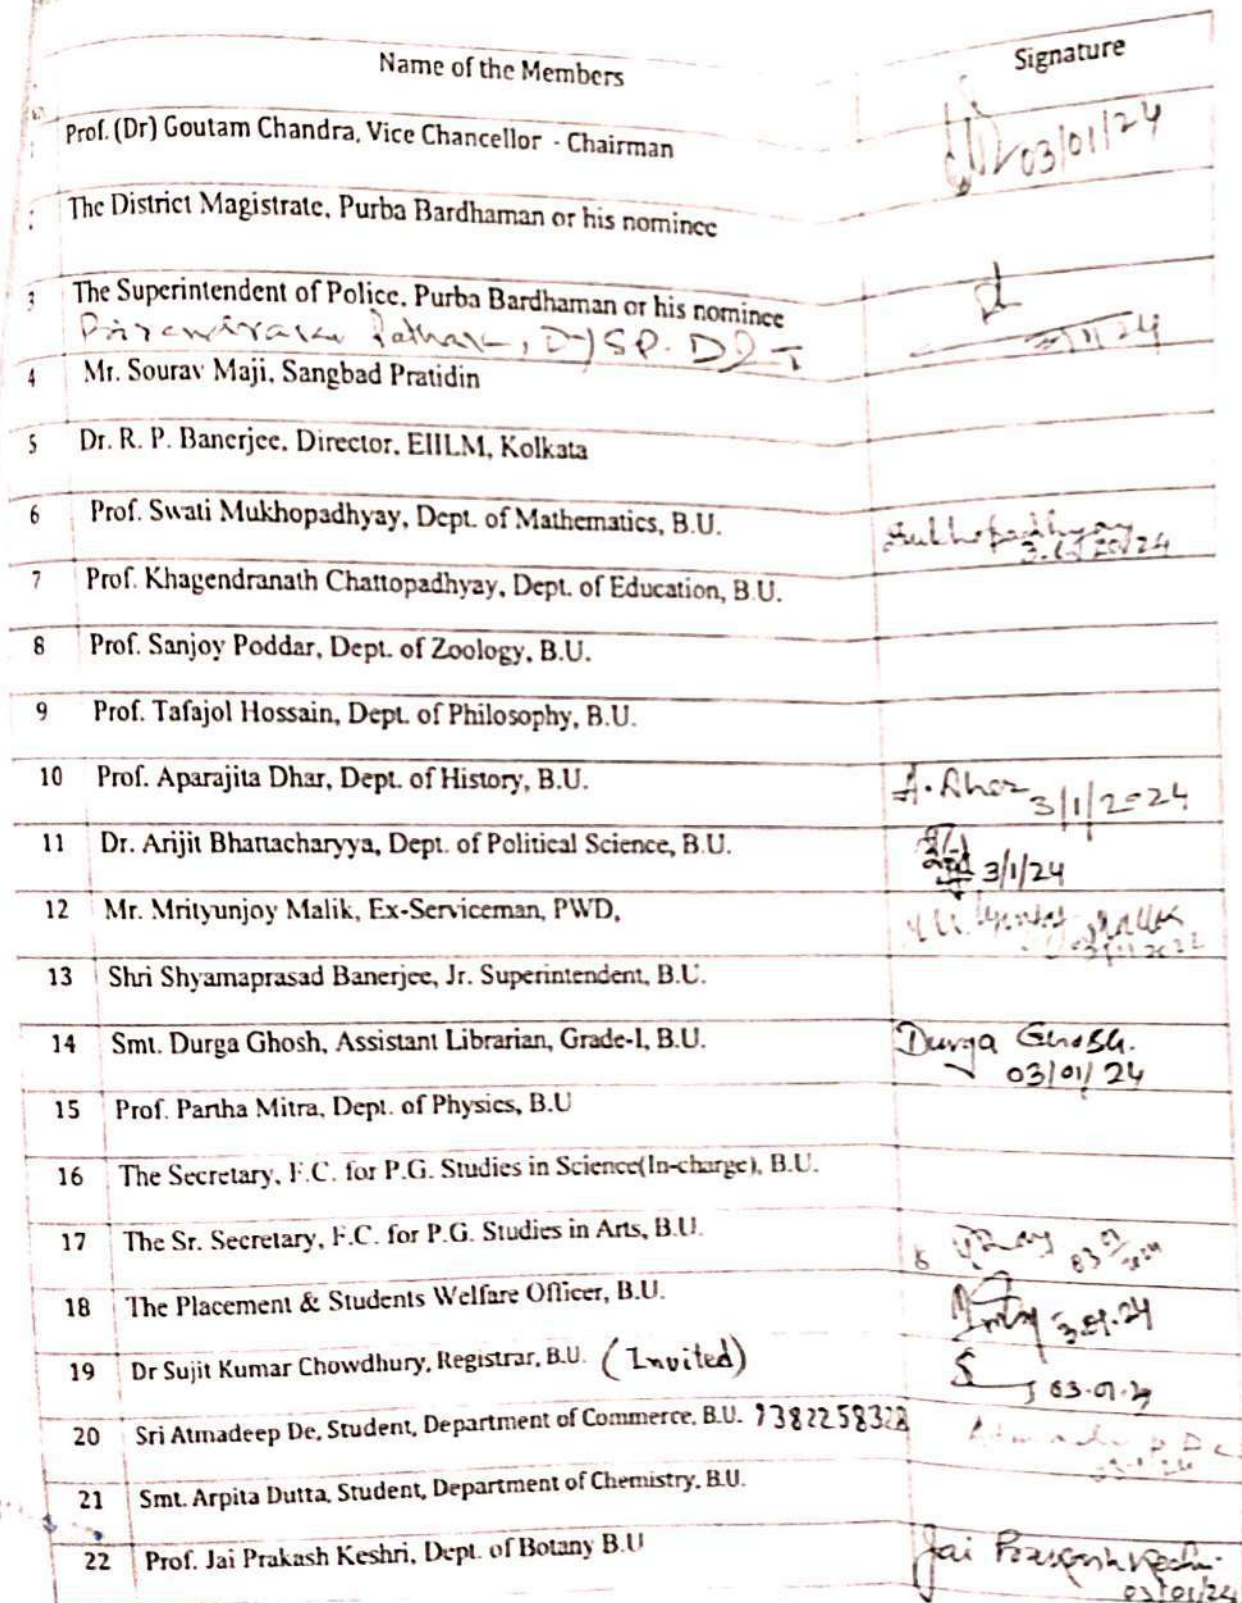 Name of the Members Signature
Prof. (Dr) Goutam Chandra, Vice Chancellor - Chairman 03/01/24
The District Magistrate, Purba Bardhaman or his nominee
3 The Superintendent of Police, Purba Bardhaman or his nominee
4 Mr. Sourav Maji, Sangbad Pratidin
5 Dr. R. P. Banerjee, Director, EIILM, Kolkata
6 Prof. Swati Mukhopadhyay, Dept. of Mathematics, B.U. Mukhopadhyay
7 Prof. Khagendranath Chattopadhyay, Dept. of Education, B.U.
8 Prof. Sanjoy Poddar, Dept. of Zoology, B.U.
9 Prof. Tafajol Hossain, Dept. of Philosophy, B.U.
10 Prof. Aparajita Dhar, Dept. of History, B.U. A. Dhar 3/1/2024
11 Dr. Arijit Bhattacharyya, Dept. of Political Science, B.U. 3/1/24
12 Mr. Mrityunjoy Malik, Ex-Serviceman, PWD,
13 Shri Shyamaprasad Banerjee, Jr. Superintendent, B.U.
14 Smt. Durga Ghosh, Assistant Librarian, Grade-I, B.U. Durga Ghosh.
03/01/24
15 Prof. Partha Mitra, Dept. of Physics, B.U
16 The Secretary, F.C. for P.G. Studies in Science(In-charge), B.U.
17 The Sr. Secretary, F.C. for P.G. Studies in Arts, B.U.
18 The Placement & Students Welfare Officer, B.U. 3.01.24
19 Dr Sujit Kumar Chowdhury, Registrar, B.U. (Invited)
20 Sri Atmadeep De, Student, Department of Commerce, B.U.
21 Smt. Arpita Dutta, Student, Department of Chemistry, B.U.
22 Prof. Jai Prakash Keshri, Dept. of Botany B.U Jai Prakash Keshri
03/01/24